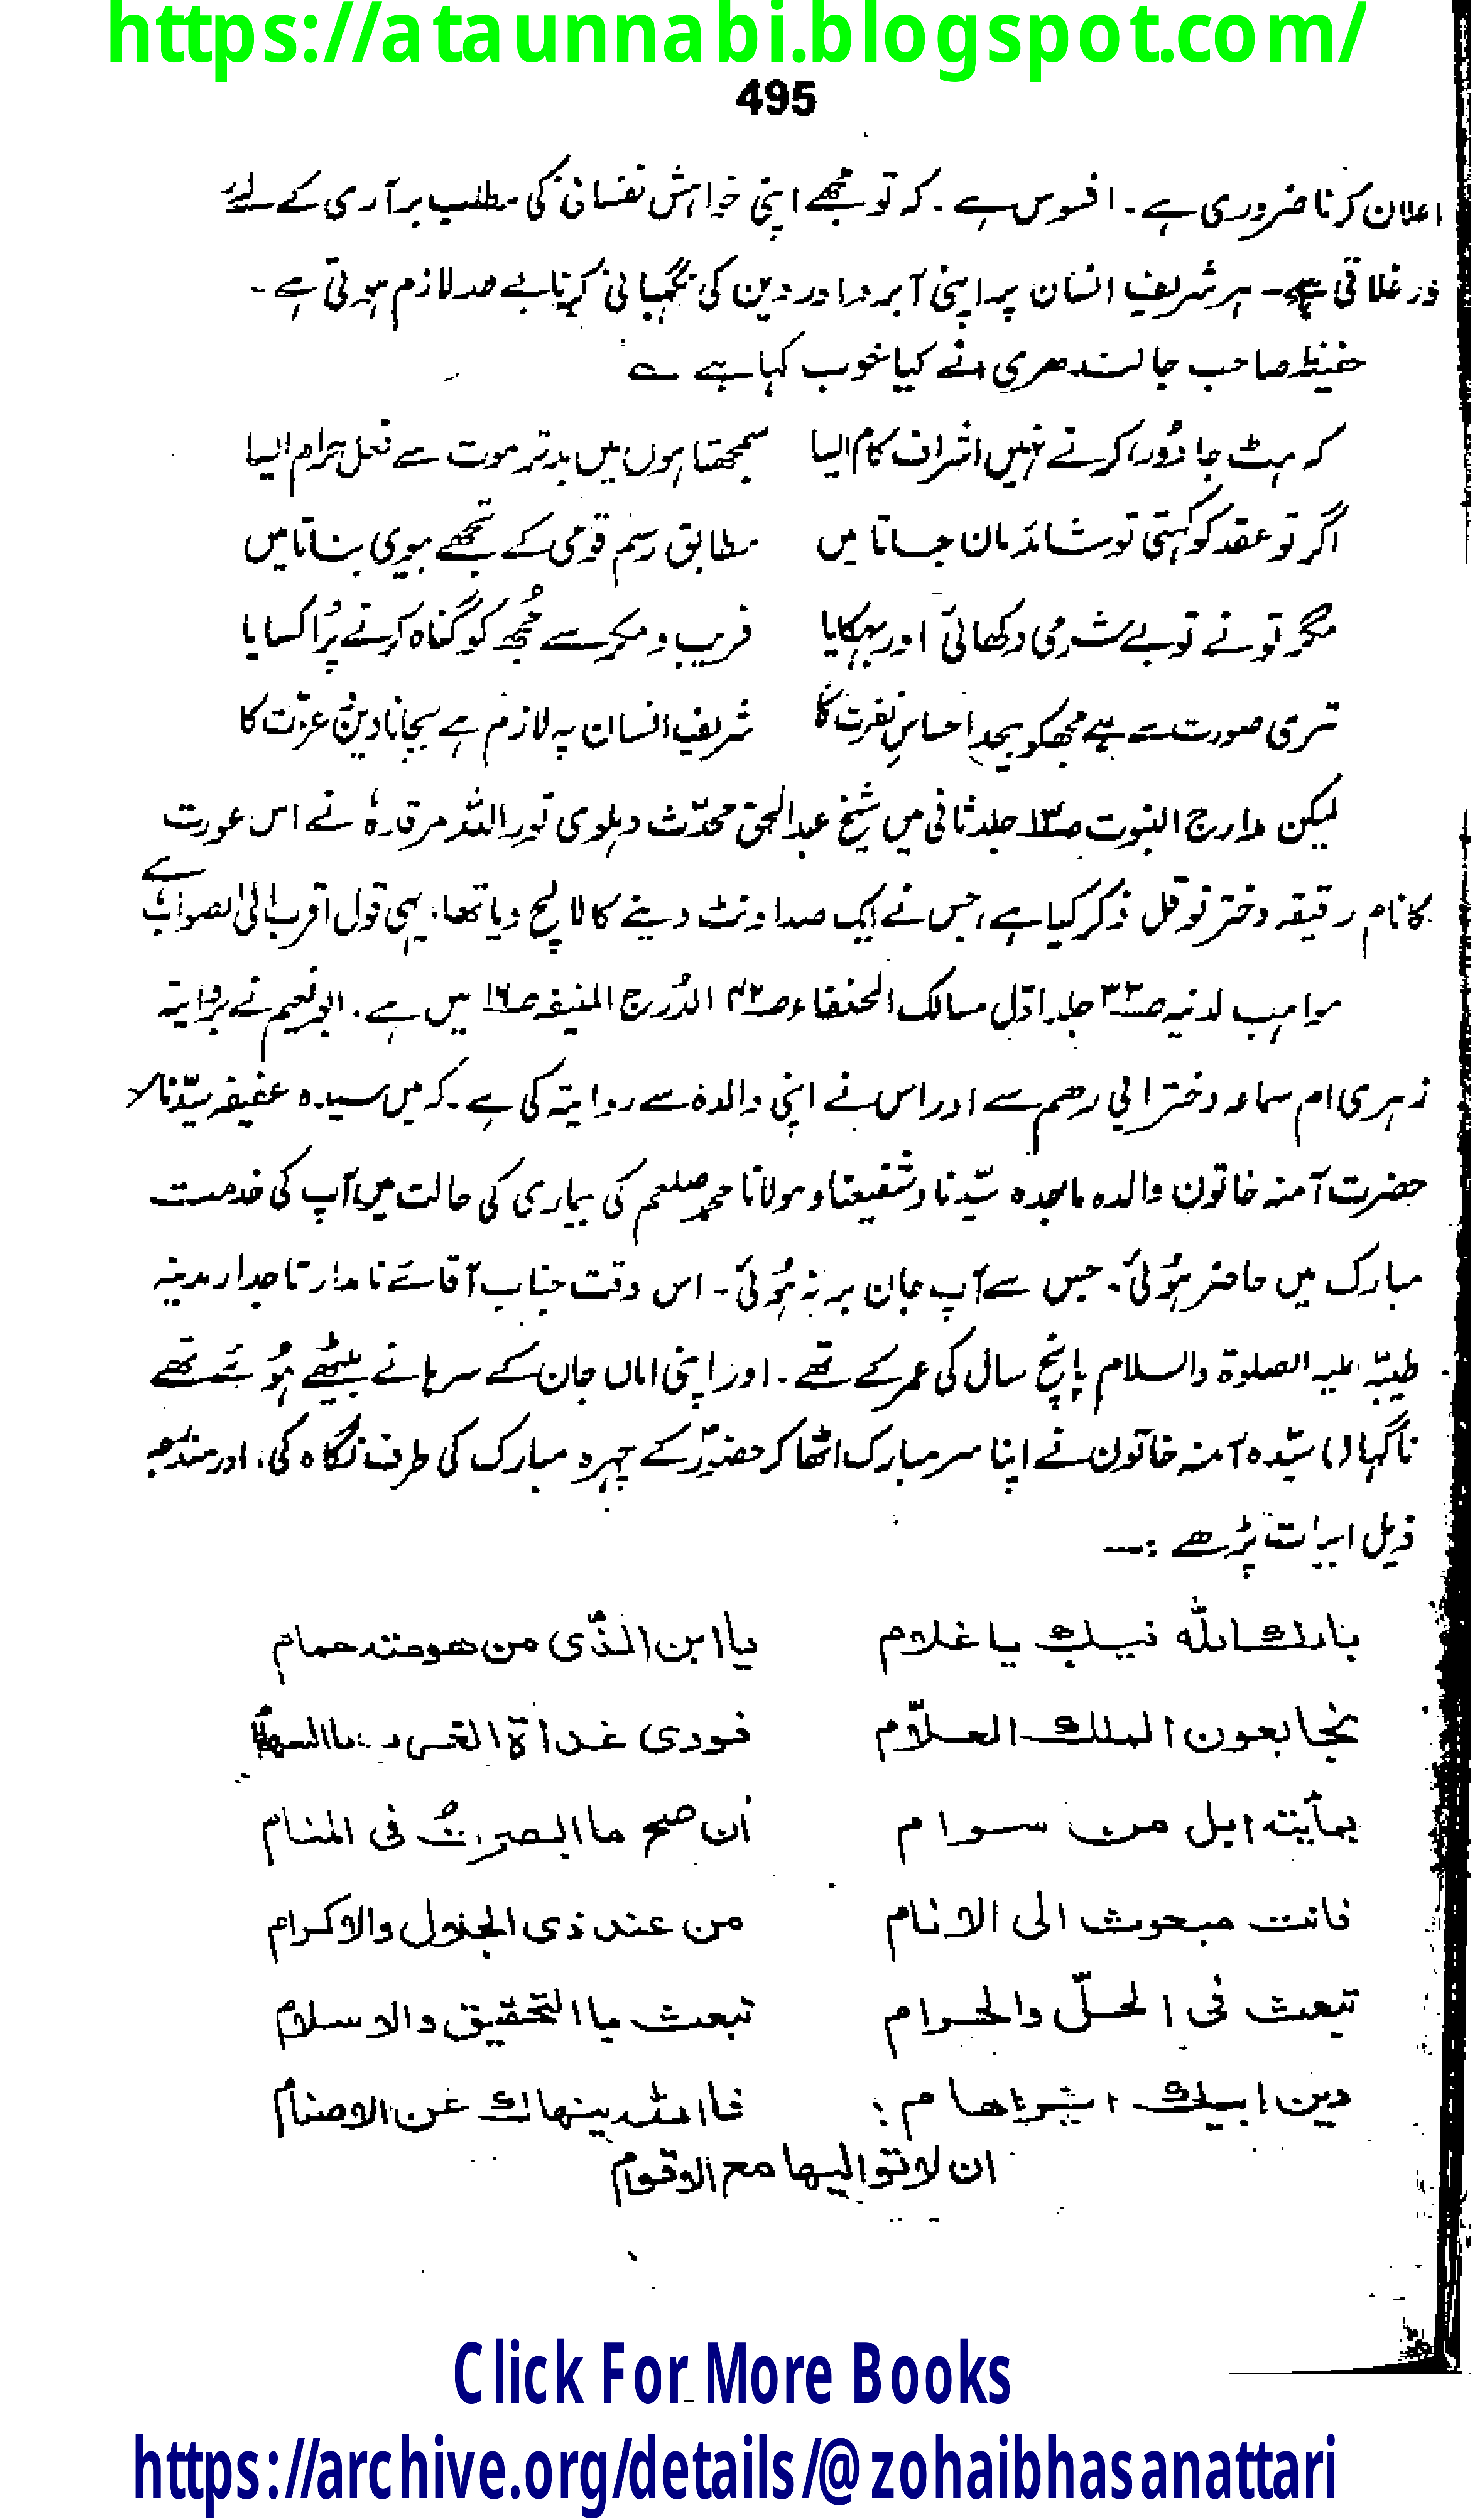 https://ataunnabi.blogspot.com/
495
اعلان کرنا ضروری ہے۔ افسوس ہے۔ کہ تو مجھے اپنی خواہش نفسانی کی مطلب برآری کے لئے
ورغلاتی ہے۔ ہر شریف انسان پر اپنی آبرو اور دین کی نگہبانی کرنا بے حد لازم ہوتی ہے۔
حفیظ صاحب جالندھری نے کیا خوب کہا ہے ؎
کہ ہٹ جا دُور، کرتے نہیں اشراف کام ایسا سمجھتا ہوں میں بدتر موت سے فعل حرام ایسا
اگر تو عقد کو کہتی تو شائد مان جاتا میں مطابق رسم قومی کے تجھے بیوی بناتا میں
مگر تو نے تو بے شرمی دکھائی اور بہکایا فریب و مکر سے مُجھ کو گناہ کرنے پر اُکسایا
تری صورت سے ہے مجھکو بیحد احساسِ نفرت کا شریف انسان پہ لازم ہے بچانا دین و عزّت کا
لیکن مدارج النبوت صـ۱۳ جلد ثانی میں شیخ عبدالحق محدّث دہلوی نور اللہ مرقدہٗ نے اس عورت
کا نام رقیقہ دختر نوفل ذکر کیا ہے، جس نے ایک صد اونٹ دینے کا لالچ دیا تھا، یہی قول اقرب الی الصواب ہے
مواہب لدنیہ صـ۳۳ جلد اوّل مسالک الحنفاء صـ۴۲ الدُرج المنیفہ صـ۱۶ میں ہے۔ ابو نعیم نے بروایۃ
زہری ام سماعہ دختر ابی رھم سے اور اس نے اپنی والدہ سے روایۃ کی ہے۔ کہ میں سیدہ عفیفہ سیّدنا
حضرت آمنہ خاتون والدہ ماجدہ سیّدنا و شفیعنا و مولانا محمد صلعم کی بیماری کی حالت میں آپ کی خدمت
مبارک میں حاضر ہُوئی۔ جس سے آپ جان بر نہ ہُوئی۔ اس وقت جناب آقائے نامدار تاجدار مدینہ
طیبّہ علیہ الصلوۃ والسلام پانچ سال کی عمر کے تھے۔ اور اپنی اماں جان کے سرہانے بیٹھے ہُوئے تھے
ناگہاں سیّدہ آمنہ خاتون نے اپنا سر مبارک اٹھا کر حضورؐ کے چہرہ مبارک کی طرف نگاہ کی، اور مندرجہ
ذیل ابیات پڑھے :—
بارك الله فيك يا غلام ياابن الذّى من حومتہ حمام
نجا بعون الملك العلّام فودى غداة الضرب بالسهام
بمأيتہ ابل من سوام أن صح ما ابصرتُ فى المنام
فانت مبعوث الى الانام من عند ذى الجلال والاكرام
تبعث فى الحلّ والحرام تبعث باالتحقيق والاسلام
دين ابيك ابراهام : فاالله ينهاك عن الاصنام
ان لا تواليها مع الاقوام
Click For More Books
https://archive.org/details/@zohaibhasanattari